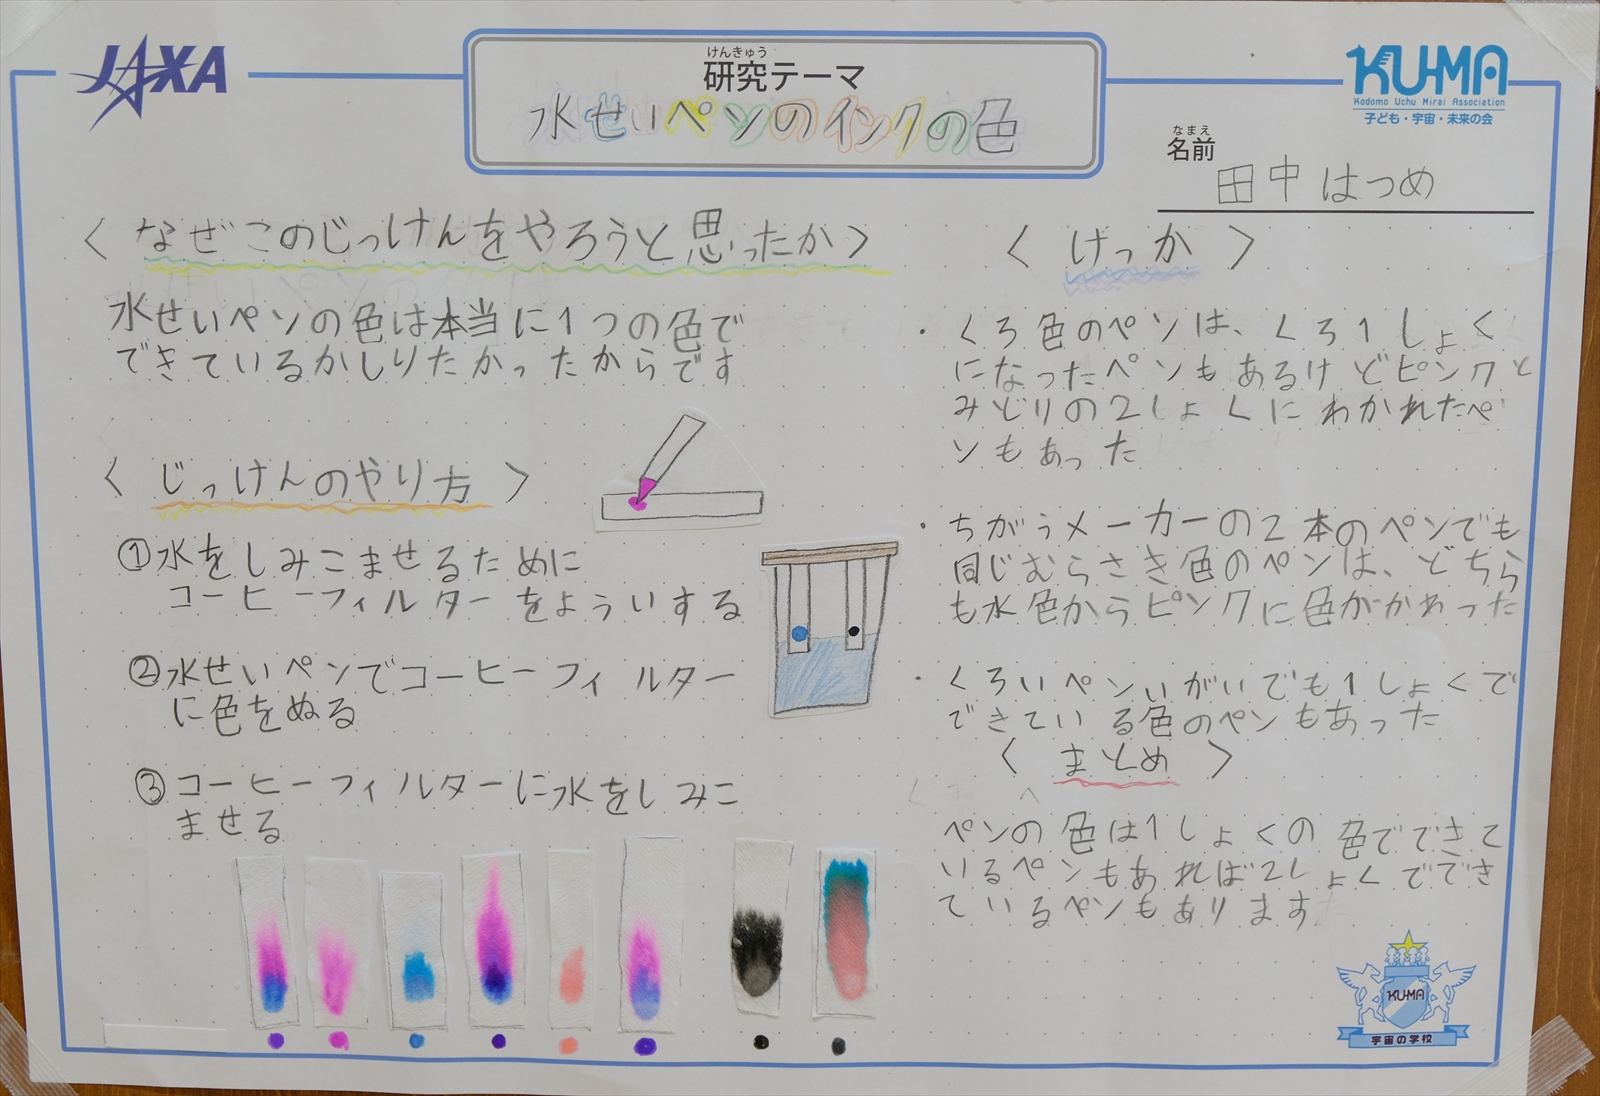 JAXA
けんきゅう
研究テーマ
水せいペンのインクの色
KU-MA
Kodomo Uchu Mirai Association
子ども・宇宙・未来の会
なまえ
名前
田中はつめ
〈なぜこのじっけんをやろうと思ったか〉
水せいペンの色は本当に1つの色で
できているかしりたかったからです
〈じっけんのやり方〉
①水をしみこませるために
コーヒーフィルターをよういする
②水せいペンでコーヒーフィルター
に色をぬる
③コーヒーフィルターに水をしみこ
ませる
〈けっか〉
・くろ色のペンは、くろ1しょく
になったペンもあるけどピンクと
みどりの2しょくにわかれたペ
ンもあった
・ちがうメーカーの2本のペンでも
同じむらさき色のペンは、どちら
も水色からピンクに色がかわった
・くろいペンいがいでも1しょくで
できている色のペンもあった
〈まとめ〉
ペンの色は1しょくの色でできて
いるペンもあれば2しょくででき
ているペンもあります
KU-MA
宇宙の学校